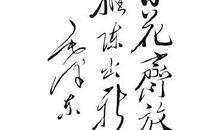 百花齐放
推陈出新
毛泽东